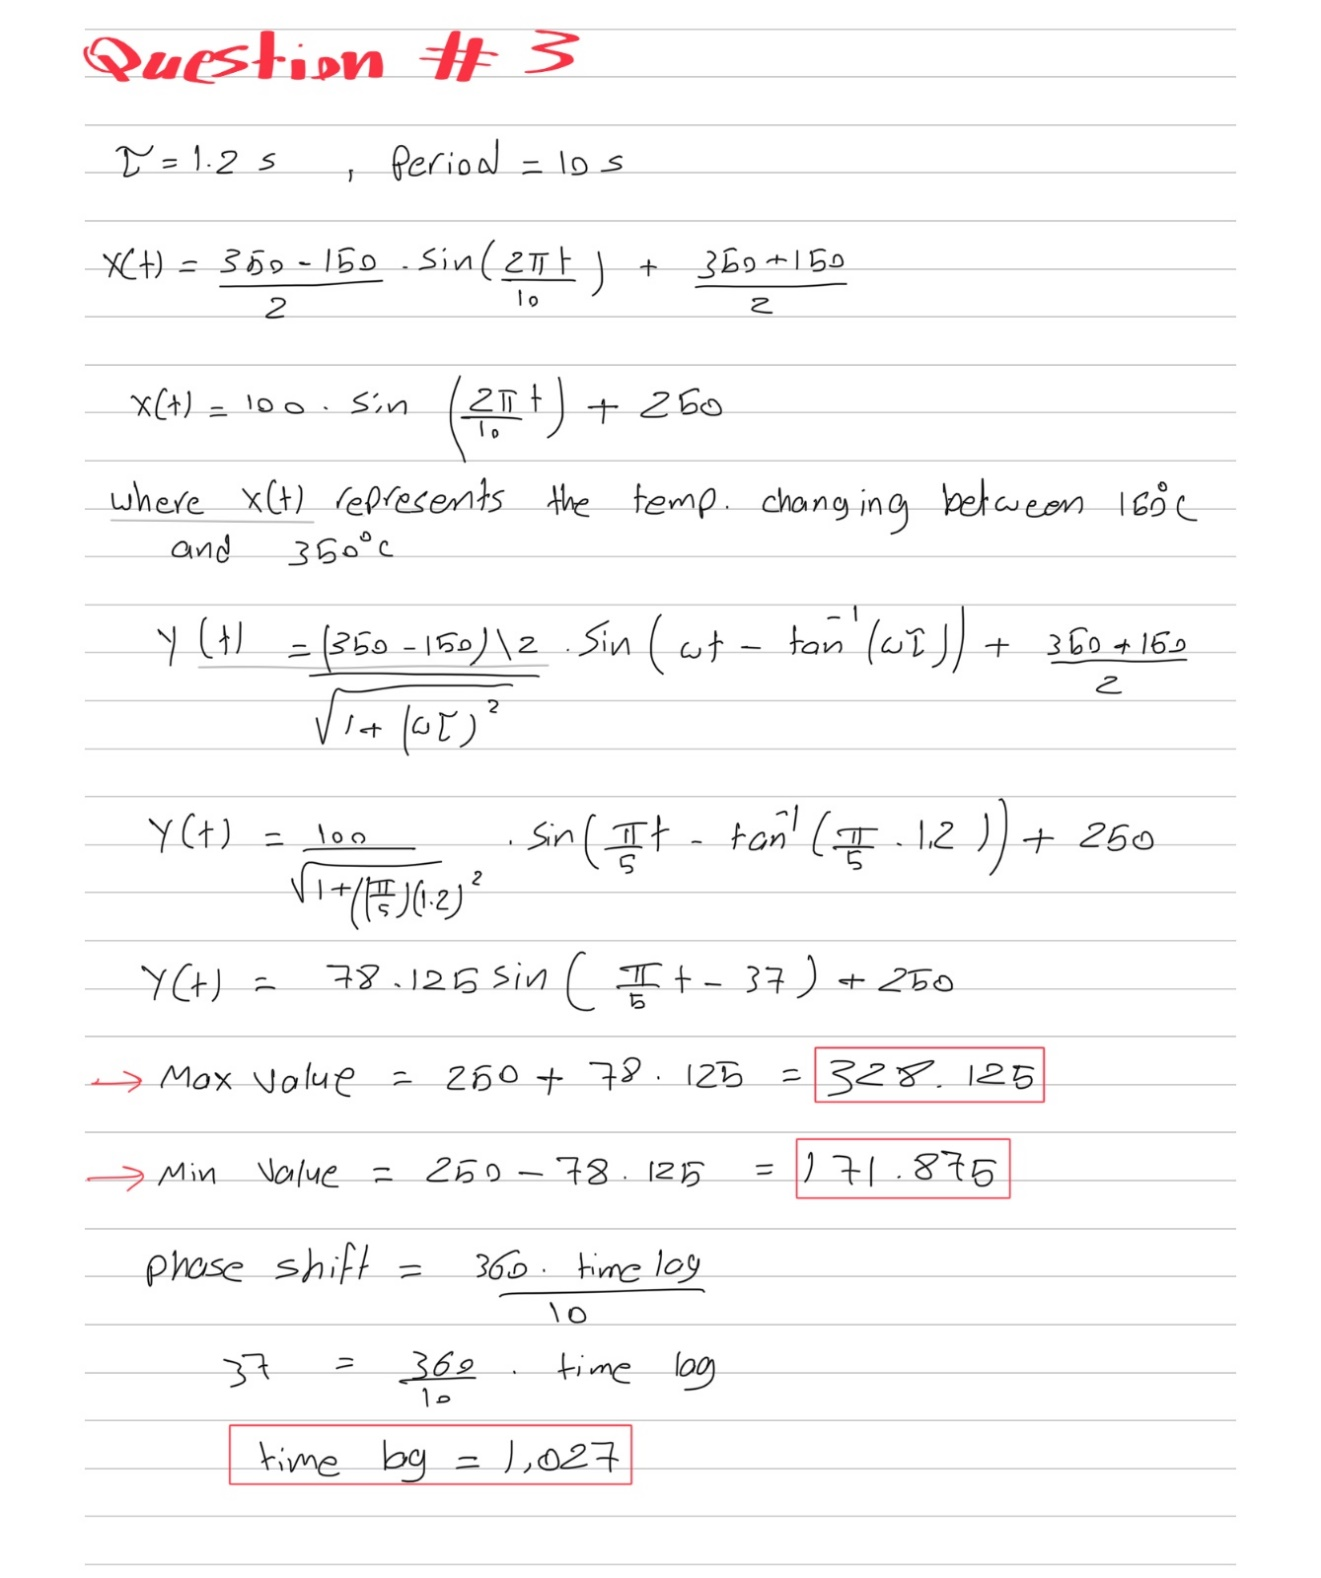 Question # 3
τ = 1.2 s , Period = 10 s
X(t) = 350 - 150 / 2 . sin( 2π t / 10 ) + 350 + 150 / 2
X(t) = 100 . sin ( 2π t / 10 ) + 250
where X(t) represents the temp. changing between 150°C
and 350°C
Y(t) = (350 - 150)\2 / √1 + (ωτ)² . Sin ( ωt - tan⁻¹ (ωτ)) + 350 + 150 / 2
Y(t) = 100 / √1+((π/5)(1.2)² . sin( π/5 t - tan⁻¹ ( π/5 . 1,2 )) + 250
Y(t) = 78.125 sin ( π/5 t - 37 ) + 250
→ Max value = 250 + 78.125 = 328.125
→ Min Value = 250 - 78.125 = 171.875
phase shift = 360. time lag / 10
37 = 360 / 10 . time lag
time lag = 1,027